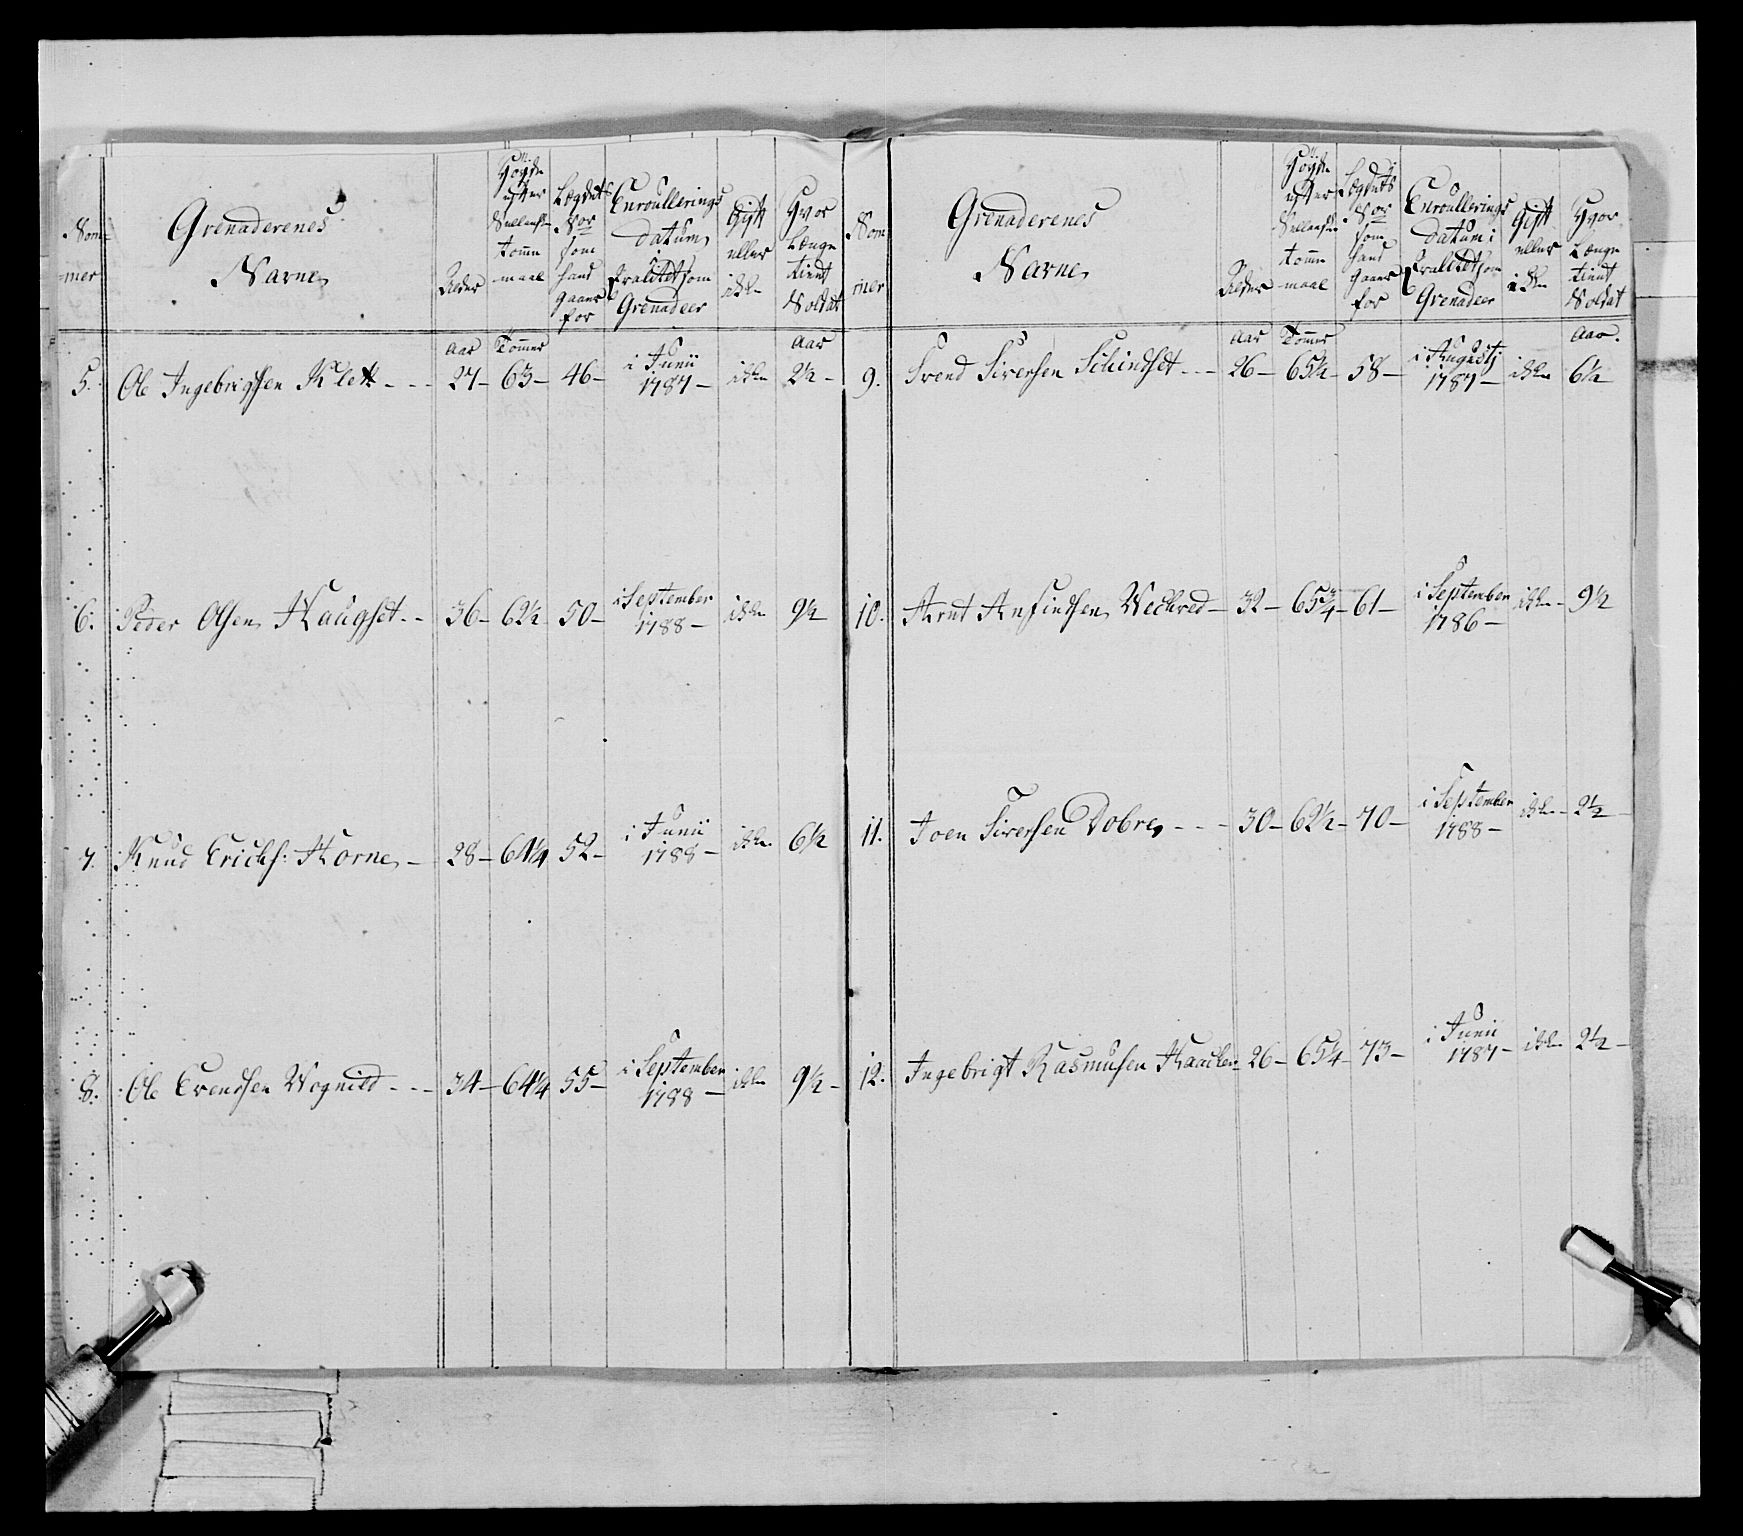 Nom
mer
Grenaderenes
Navne
Alder
Höyde
efter
Sællandsk
tomme
maal
Lægdets
Nor
som
hand
gaaer
for
Enroullerings
datum i
Qvalitet som
Grenadeer
Gift
eller
ikke
Hvor
Længe
tient
Soldat
aar Tommer aar
5. Ole Ingebrigtsen Klett --- 27 – 63 – 46 – i Junii 1787 – ikke 2½ –
6. Peder Olsen Haugset -- 36 – 62½ 50 – i September 1788 – ikke 9½
7. Knud Ericks: Horne – 28 – 64¼ 52 – i Junii 1788 – ikke 6½
8. Ole Evendsen Wognild --- 34 – 64¼ 55 – i September 1788 – ikke 9½ –
Nom
mer
Grenaderenes
Navne
Alder
Höyde
efter
Sællandsk
tomme
maal
Lægdets
Nor
som
hand
gaaer
for
Enroullerings
datum i
Qvalitet som
Grenadeer
Gift
eller
ikke
Hvor
Længe
tient
Soldat
aar Tommer aar.
9. Svend Siversen --- 26 – 65½ – 58 – i Augustj 1787 – ikke 6½
10. Arnt Anfindsen – 32 – 65¾ – 61 – i September 1786 – ikke – 9½
11. Joen Siversen Dobre --- 30 – 62½ – 70 – i September 1788 – ikke – 2½
12. Ingebrigt Rasmusen – 26 – 65¼ – 73 – i Junii 1787 – ikke – 2½ –